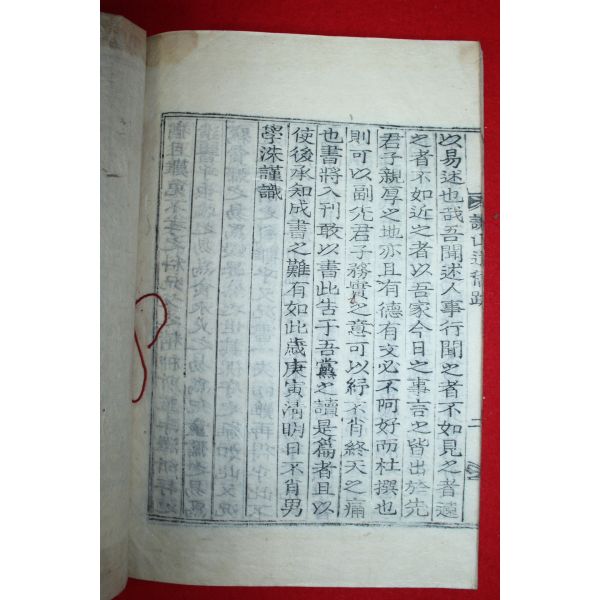 以易述也哉吾聞述人事行聞之者不如見之者遠
之者不如近之者以吾家今日之事言之皆出於先
君子親厚之地亦且有德有文必不阿好而杜撰也
則可以副先君子務實之意可以紓不肖終天之痛
也書將入刊敢以書此告于吾黨之讀是篇者且以
使後承知成書之難有如此歲庚寅清明日不肖男
學洙謹識
山遺稿跋
二